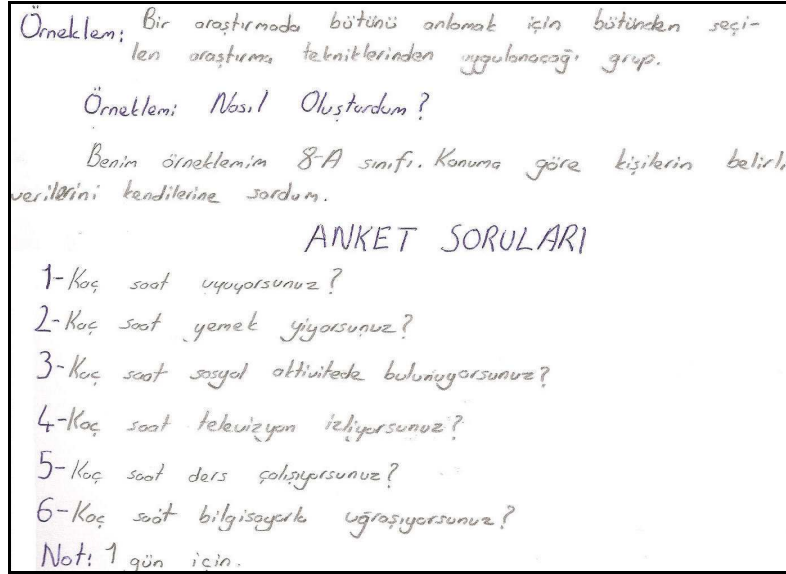 Örneklem: Bir araştırmada bütünü anlamak için bütünden seçi-
len araştırma tekniklerinden uygulanacağı grup.
Örneklemi Nasıl Oluşturdum?
Benim örneklemim 8-A sınıfı. Konuma göre kişilerin belirli
verilerini kendilerine sordum.
ANKET SORULARI
1-Kaç saat uyuyorsunuz?
2-Kaç saat yemek yiyorsunuz?
3-Kaç saat sosyal aktivitede bulunuyorsunuz?
4-Kaç saat televizyon izliyorsunuz?
5-Kaç saat ders çalışıyorsunuz?
6-Kaç saat bilgisayarla uğraşıyorsunuz?
Not: 1 gün için.